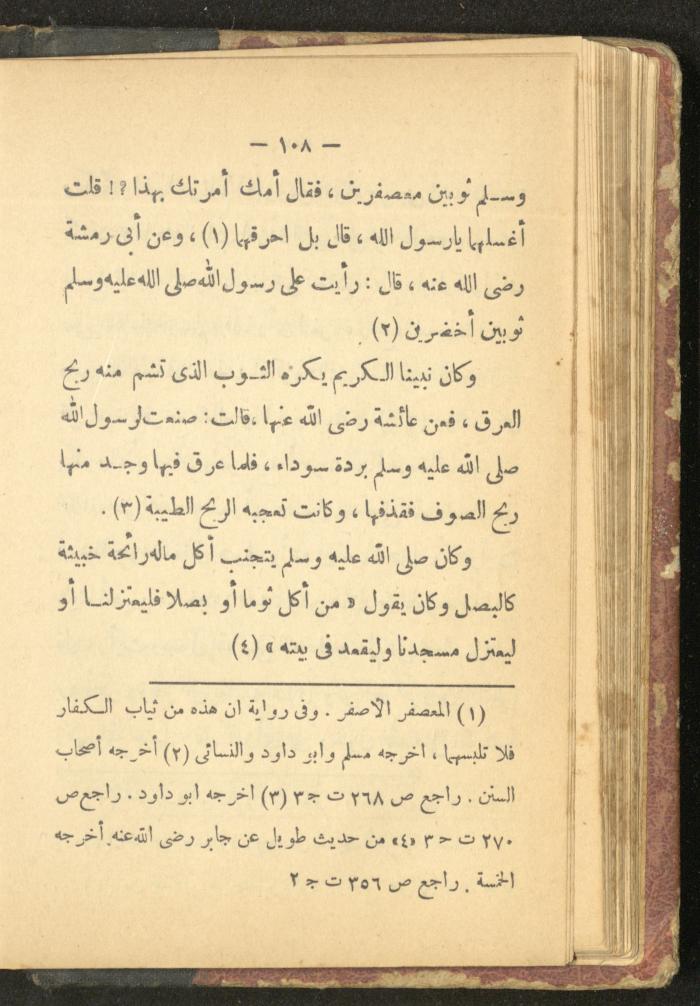 — ١٠٨ —
وسلم ثوبين معصفرين ، فقال أمك أمرتك بهذا ؟! قلت
أغسلهما يارسول الله ، قال بل احرقهما (١) ، وعن أبى رمثة
رضى الله عنه ، قال : رأيت على رسول الله صلى الله عليه وسلم
ثوبين أخضرين (٢)
وكان نبينا الكريم يكره الثوب الذى تشم منه ريح
العرق ، فعن عائشة رضى الله عنها ، قالت : صنعت لرسول الله
صلى الله عليه وسلم بردة سوداء ، فلما عرق فيها وجد منها
ريح الصوف فقذفها ، وكانت تعجبه الريح الطيبة (٣) .
وكان صلى الله عليه وسلم يتجنب أكل ماله رائحة خبيثة
كالبصل وكان يقول « من أكل ثوما أو بصلا فليعتزلنا أو
ليعتزل مسجدنا وليقعد فى بيته » (٤)
(١) المعصفر الاصفر . وفى رواية ان هذه من ثياب الكفار
فلا تلبسهما ، اخرجه مسلم وابو داود والنسائى (٢) أخرجه أصحاب
السنن . راجع ص ٢٦٨ ت ج ٣ (٣) اخرجه ابو داود . راجع ص
٢٧٠ ت ح ٣ «٤» من حديث طويل عن جابر رضى الله عنه . أخرجه
الخمسة . راجع ص ٣٥٦ ت ج ٢